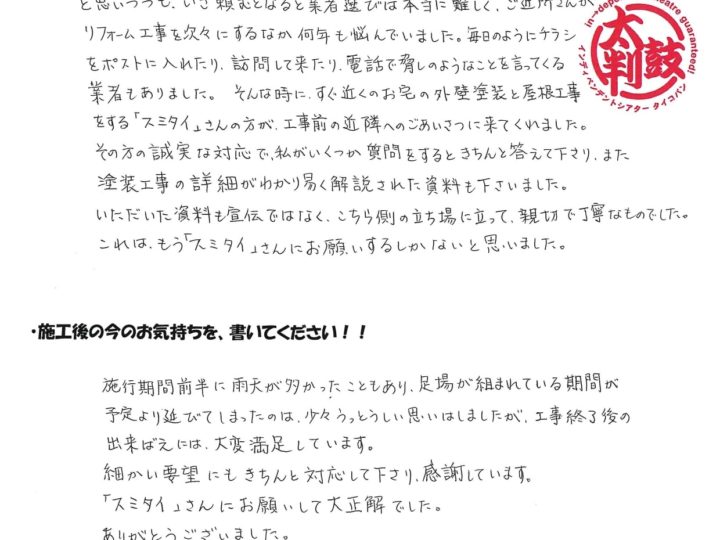 と思いつつも、いざ頼むとなると業者選びは本当に難しく、ご近所さんが
リフォーム工事を次々にするなか何年も悩んでいました。毎日のようにチラシ
をポストに入れたり、訪問して来たり、電話で脅しのようなことを言ってくる
業者もありました。そんな時に、すぐ近くのお宅の外壁塗装と屋根工事
をする「スミタイ」さんの方が、工事前の近隣へのごあいさつに来てくれました。
その方の誠実な対応で、私がいくつか質問をするときちんと答えて下さり、また
塗装工事の詳細がわかり易く解説された資料も下さいました。
いただいた資料も宣伝ではなく、こちら側の立ち場に立って、親切で丁寧なものでした。
これは、もう「スミタイ」さんにお願いするしかないと思いました。
太鼓判
theatre guaranteed!
インディペンデントシアター タイコバン
・施工後の今のお気持ちを、書いてください！！
施行期間前半に雨天が多かったこともあり、足場が組まれている期間が
予定より延びてしまったのは、少々うっとうしい思いはしましたが、工事終了後の
出来ばえには、大変満足しています。
細かい要望にもきちんと対応して下さり、感謝しています。
「スミタイ」さんにお願いして大正解でした。
ありがとうございました。